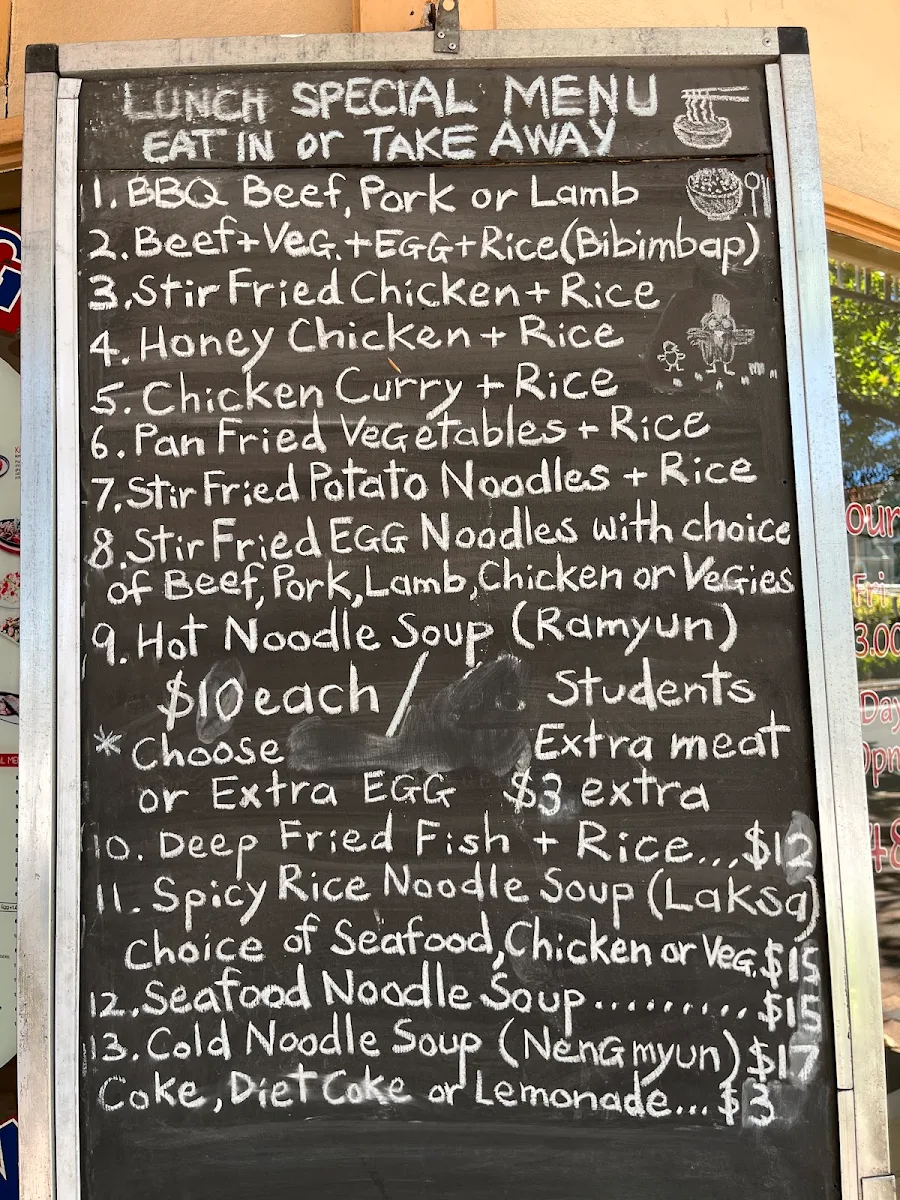 LUNCH SPECIAL MENU
EAT IN or TAKE AWAY
1. BBQ Beef, Pork or Lamb
2. Beef+VeG.+EGG+Rice(Bibimbap)
3. Stir Fried Chicken + Rice
4. Honey Chicken + Rice
5. Chicken Curry + Rice
6. Pan Fried VeGetables + Rice
7. Stir Fried Potato Noodles + Rice
8. Stir Fried EGG Noodles with choice
of Beef, Pork, Lamb, Chicken or VeGies
9. Hot Noodle Soup (Ramyun)
$10 each / Students
* Choose Extra meat
or Extra EGG $3 extra
10. Deep Fried Fish + Rice...$12
11. Spicy Rice Noodle Soup (Laksa)
Choice of Seafood, Chicken or VeG. $15
12. Seafood Noodle Soup.........$15
13. Cold Noodle Soup (NenGmyun) $17
Coke, Diet Coke or Lemonade...$3
our
Fri
3.00
Day
0pm